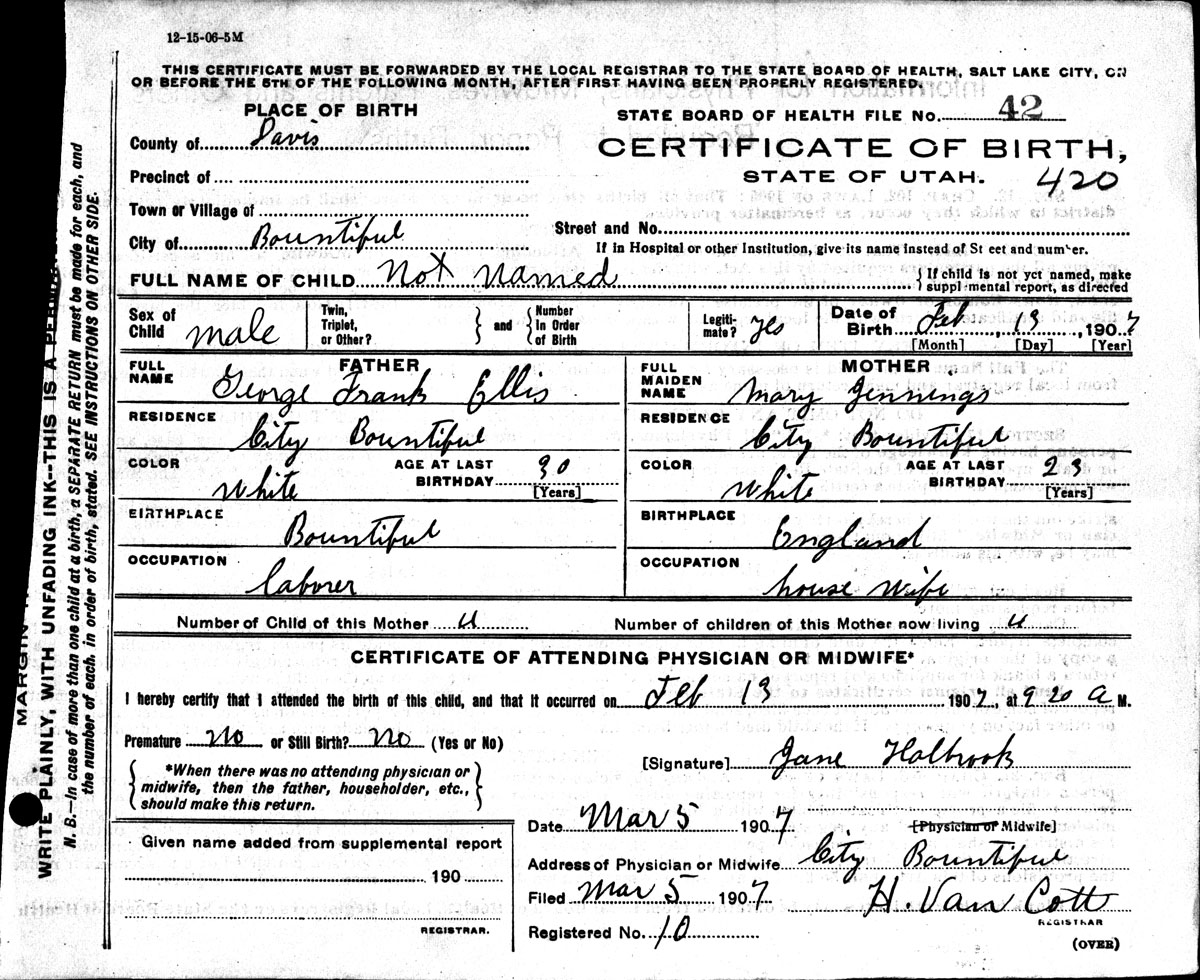 12-15-06-5M
THIS CERTIFICATE MUST BE FORWARDED BY THE LOCAL REGISTRAR TO THE STATE BOARD OF HEALTH, SALT LAKE CITY, ON
OR BEFORE THE 5TH OF THE FOLLOWING MONTH, AFTER FIRST HAVING BEEN PROPERLY REGISTERED.
PLACE OF BIRTH
STATE BOARD OF HEALTH FILE NO. 42
County of Davis
CERTIFICATE OF BIRTH,
STATE OF UTAH. 420
Precinct of
Town or Village of
Street and No.
City of Bountiful
If in Hospital or other Institution, give its name instead of St eet and num er.
FULL NAME OF CHILD Not Named
{ If child is not yet named, make
suppl mental report, as directed
Sex of Child male
Twin, Triplet, or Other? } and { Number In Order of Birth
Legiti-mate? yes
Date of Birth Feb, 13, 1907
[Month] [Day] [Year]
FATHER
FULL NAME George Frank Ellis
RESIDENCE City Bountiful
COLOR White AGE AT LAST BIRTHDAY 30 [Years]
BIRTHPLACE Bountiful
OCCUPATION laborer
MOTHER
FULL MAIDEN NAME Mary Jennings
RESIDENCE City Bountiful
COLOR White AGE AT LAST BIRTHDAY 23 [Years]
BIRTHPLACE England
OCCUPATION house wife
Number of Child of this Mother 4 Number of children of this Mother now living 4
CERTIFICATE OF ATTENDING PHYSICIAN OR MIDWIFE*
I hereby certify that I attended the birth of this child, and that it occurred on Feb 13 1907, at 9 20 a M.
Premature No or Still Birth? No (Yes or No)
[Signature] Jane Holbrook
{ *When there was no attending physician or
midwife, then the father, householder, etc.,
should make this return. }
Date Mar 5 1907 [Physician or Midwife]
Given name added from supplemental report
190
REGISTRAR.
Address of Physician or Midwife City Bountiful
Filed Mar 5 1907 H. Van Cott
REGISTRAR
Registered No. 10
(OVER)
WRITE PLAINLY, WITH UNFADING INK--THIS IS A
N. B.--In case of more than one child at a birth, a SEPARATE RETURN must be made for each, and
the number of each, in order of birth, stated. SEE INSTRUCTIONS ON OTHER SIDE.
MARGIN